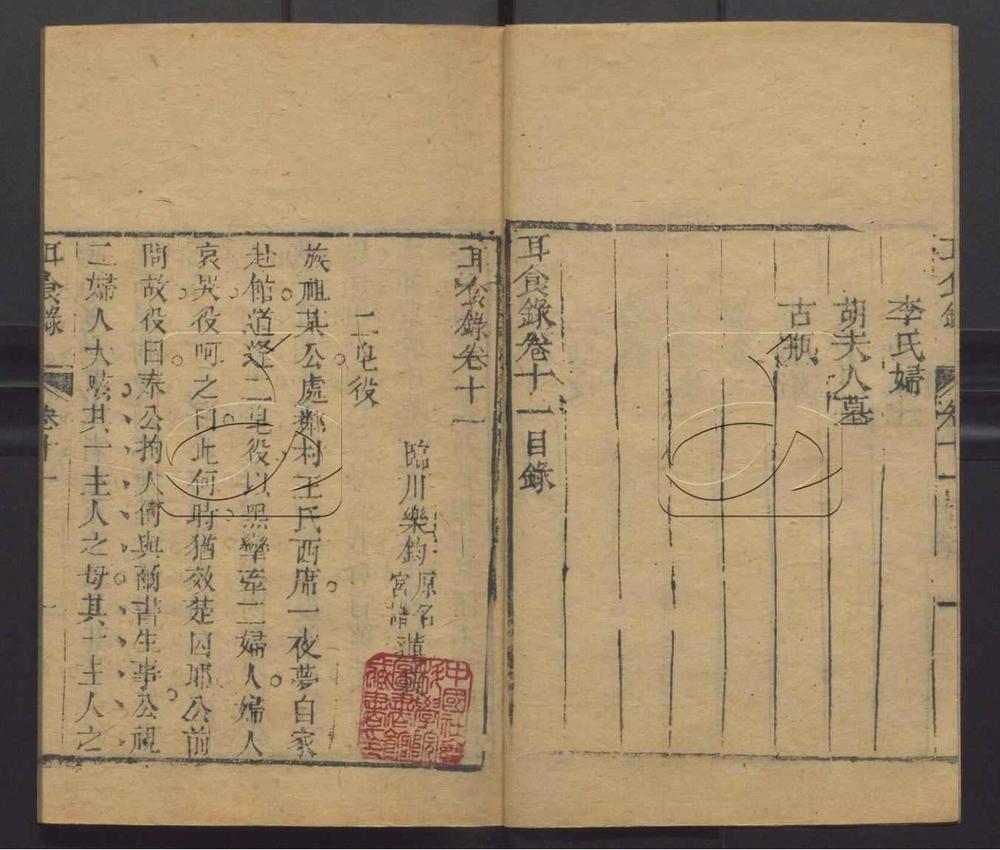 耳食錄
卷十一
李氏婦
胡夫人墓
古瓶
耳食錄卷十一目錄
耳食錄卷十一
臨川樂鈞
原名
宮譜
二皂役
族祖某公處鄰村王氏西席一夜夢自家
赴館道逢二皂役以黑牽二婦人婦人
哀哭役呵之曰此何時猶效楚囚耶公前
問故役曰奉公拘人何與爾書生事公視
二婦人大駭其一主人之母其一主人之
耳食錄
卷十一
一